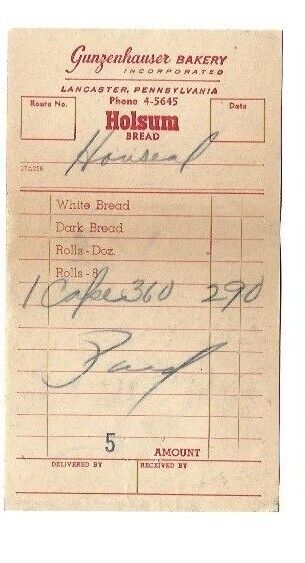 Gunzenhauser BAKERY
INCORPORATED
LANCASTER, PENNSYLVANIA
Route No. Phone 4-5645 Date
Holsum
BREAD
White Bread
Dark Bread
Rolls - Doz.
Rolls - 8
1 Cake 360 290
Paid
5 AMOUNT
DELIVERED BY RECEIVED BY